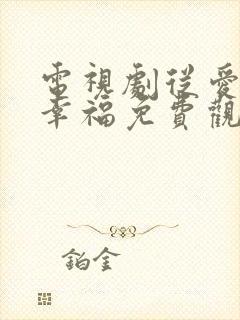 電視劇從愛
幸福免費觀
鉑金